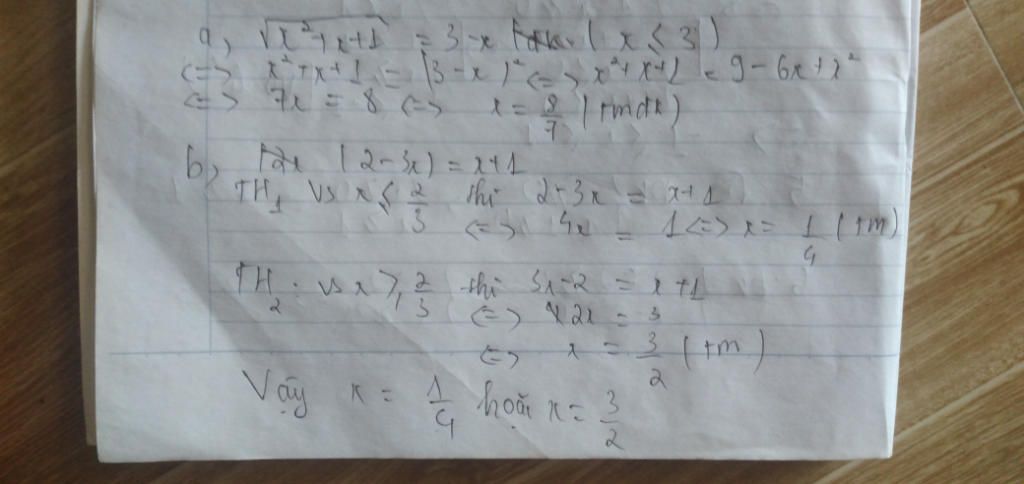 a, √x²+x+1 = 3-x (x ≤ 3)
<=> x²+x+1 = (3-x)² <=> x²+x+1 = 9-6x+x²
<=> 7x = 8 <=> x = 8/7 (tmđk)
b, |2-3x| = x+1
TH1 vs x ≤ 2/3 thì 2-3x = x+1
<=> 4x = 1 <=> x = 1/4 (tm)
TH2. vs x ≥ 2/3 thì 3x-2 = x+1
<=> 2x = 3
<=> x = 3/2 (tm)
Vậy x = 1/4 hoặc x = 3/2